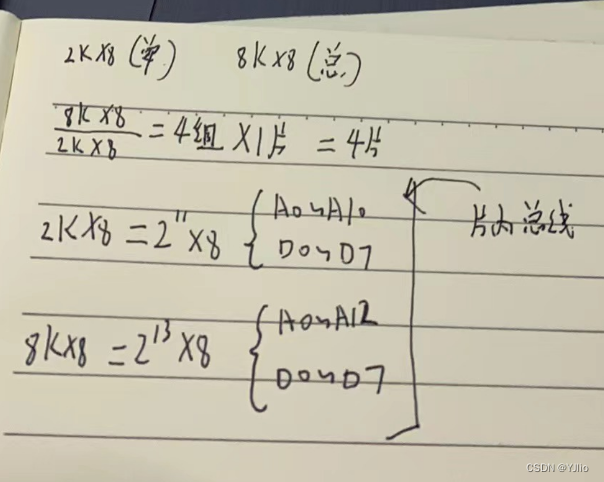 2K×8(单) 8K×8(总)
8K×8/2K×8 = 4组 ×1片 = 4片
2K×8 = 2^11×8 { A0~A10
D0~D7
片内总线
8K×8 = 2^13×8 { A0~A12
D0~D7
CSDN @YJlio